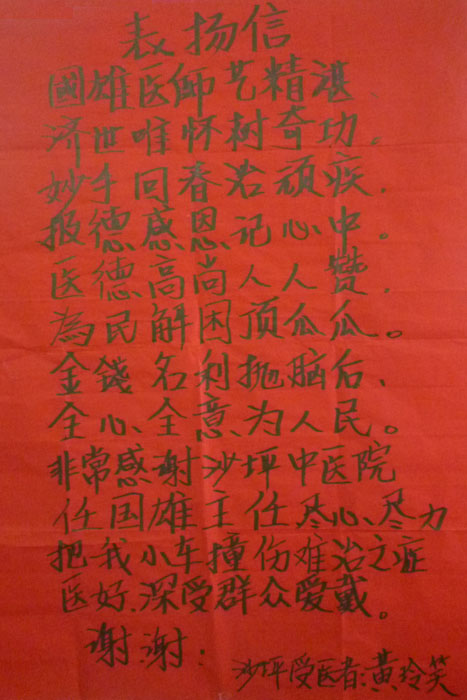 表扬信
國雄医師艺精湛、
济世唯怀树奇功。
妙手回春治顽疾，
报德感恩记心中。
医德高尚人人赞，
為民解困顶瓜瓜。
金錢名利抛脑后、
全心全意为人民。
非常感谢沙坪中医院
任国雄主任尽心尽力
把我小车撞伤难治之症
医好.深受群众爱戴。
谢谢：
沙坪受医者:黄玲笑